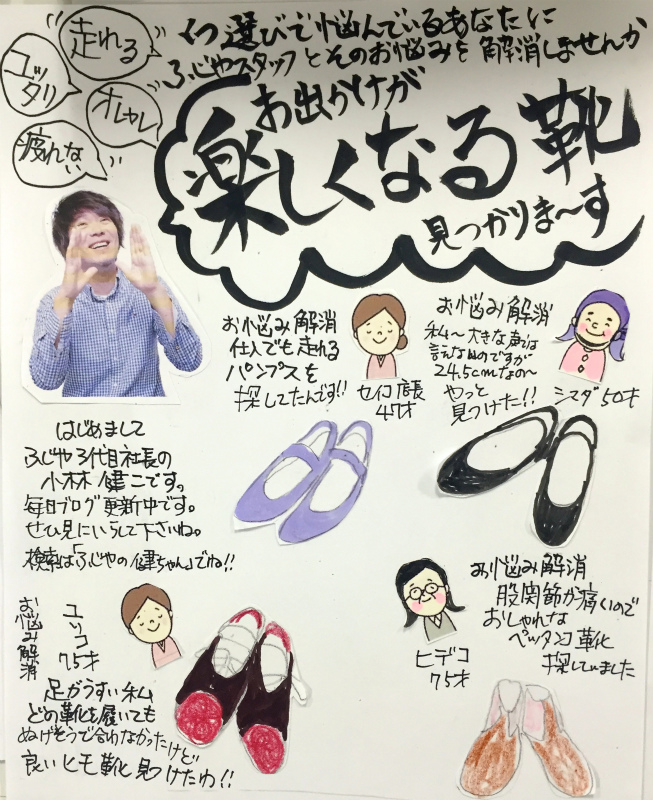 走れる
ユッタリ
オシャレ
疲れない
くつ選びで悩んでいるあなたに
ふじやスタッフとそのお悩みを解消しませんか
お出かけが
楽しくなる靴
見つかりま〜す
お悩み解消
仕事でも走れる
パンプスを
探してたんです!!
セイコ店長
47才
お悩み解消
私〜大きな声では
言えないのですが
24.5cmなの〜
やっと
見つけた!!
シマダ50才
はじめまして
ふじや3代目社長の
小林健二です。
毎日ブログ更新中です。
ぜひ見にいらして下さいね。
検索は「ふじやの健ちゃん」でね!!
お悩み解消
ユッコ
75才
足がうすい私
どの靴を履いても
ぬげそうで合わなかったけど
良いヒモ靴見つけたわ!!
ヒデコ
75才
お悩み解消
股関節が痛くいので
おしゃれな
ペッタンコ靴
探していました